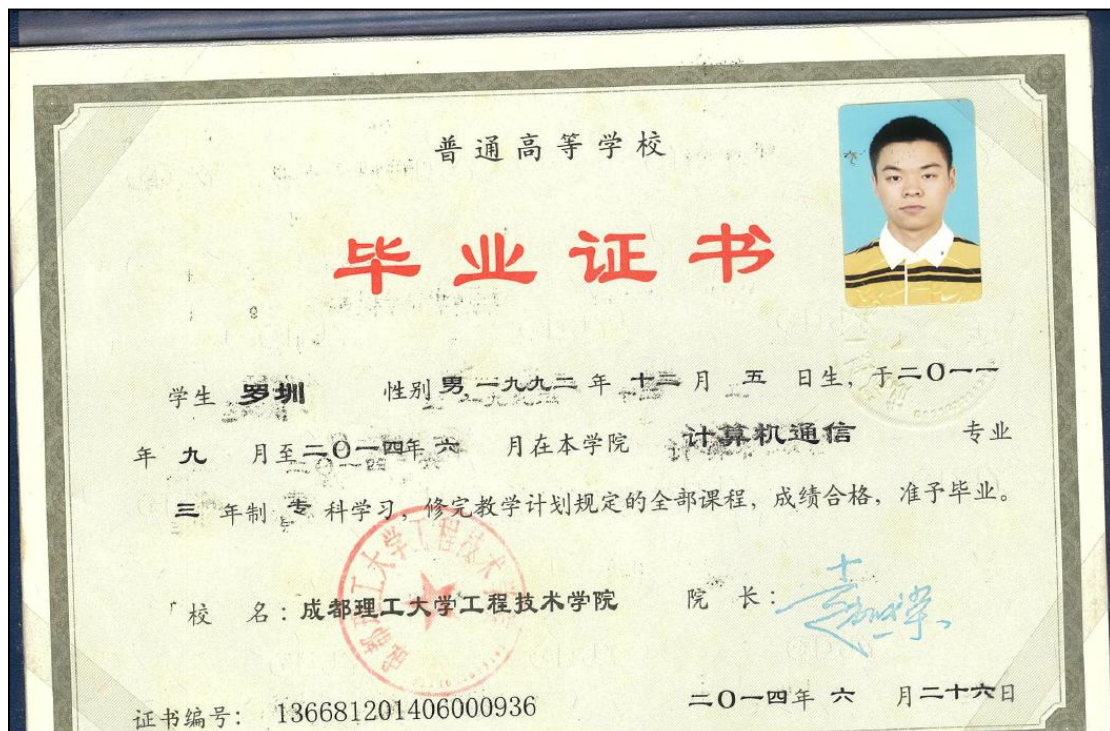 普通高等学校
毕业证书
学生 罗圳 性别 男，一九九二 年 十二 月 五 日生，于二〇一一
年 九 月至二〇一四年 六 月在本学院 计算机通信 专业
三 年制 专 科学习，修完教学计划规定的全部课程，成绩合格，准予毕业。
校 名：成都理工大学工程技术学院 院 长：
成都理工大学工程技术学院
证书编号： 136681201406000936 二〇一四年 六 月二十六日